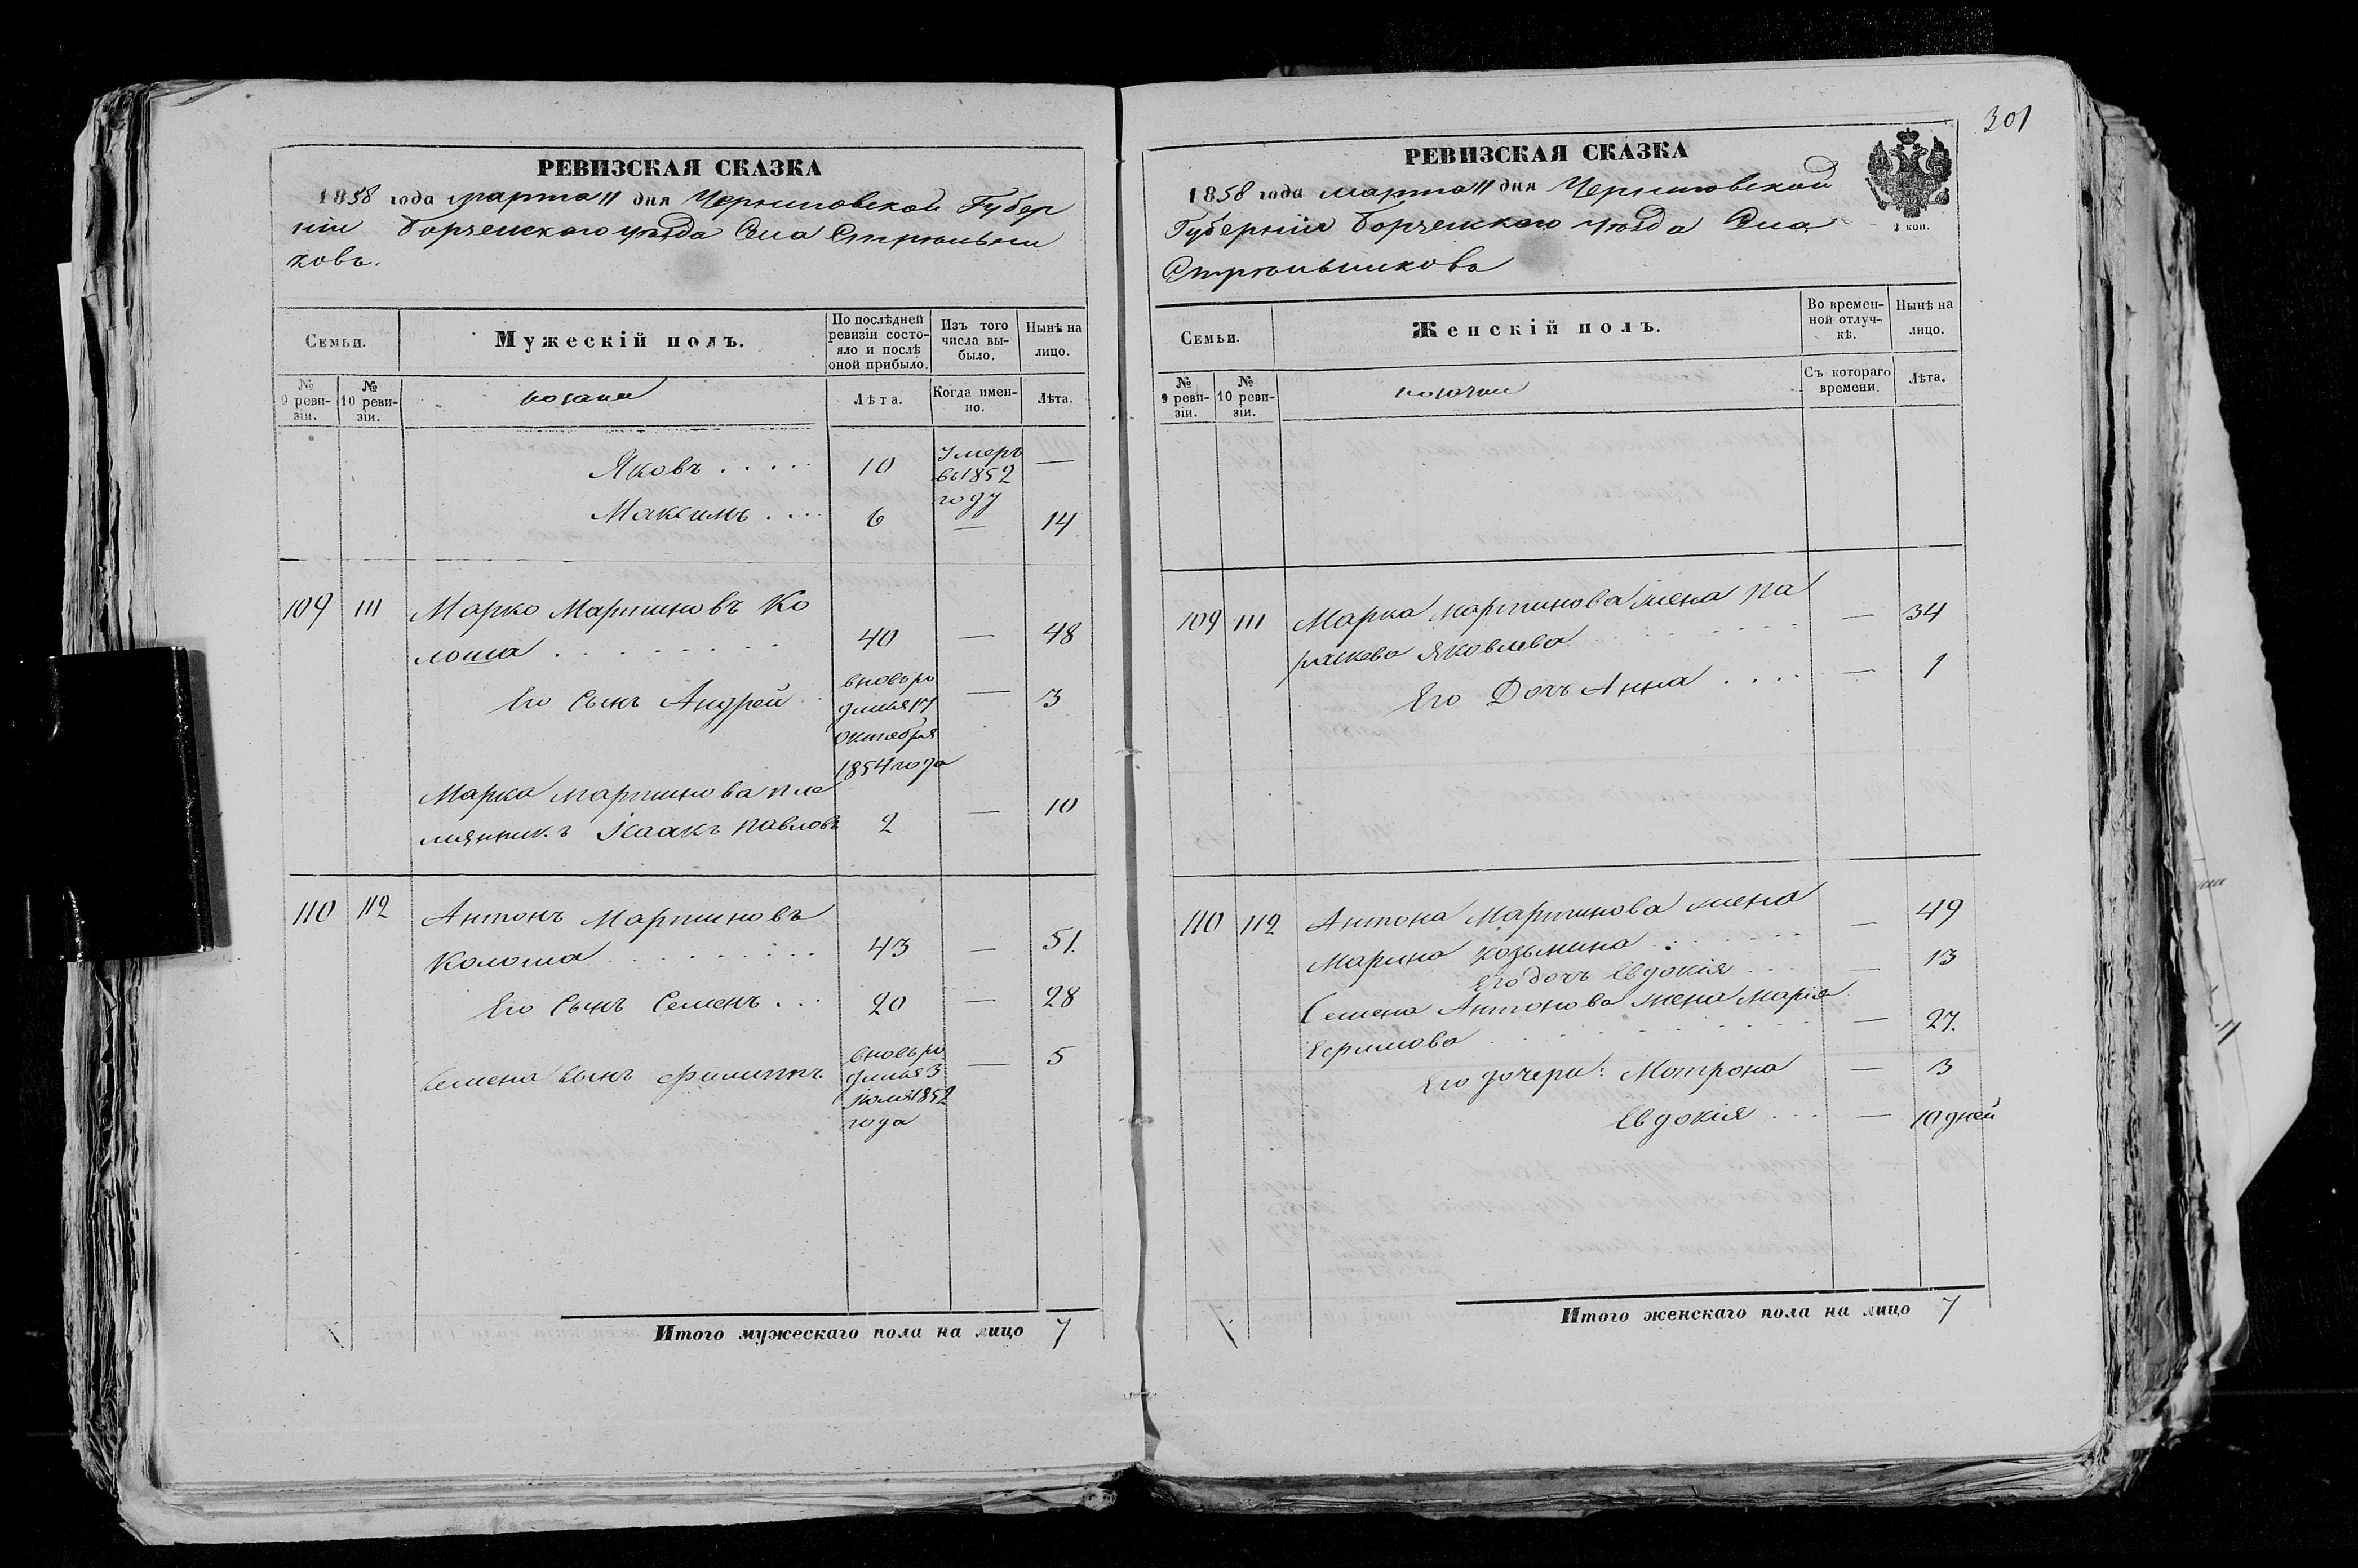 301
РЕВИЗСКАЯ СКАЗКА
1858 года марта 11 дня Черниговской Губер
ніи Борзенского уѣзда Села Стрѣльни
ковъ.
Семьи.
Мужескій полъ.
По послѣдней ревизіи состояло и послѣ оной прибыло.
Изъ того числа выбыло.
Нынѣ на лицо.
№ 9 ревизіи.
№ 10 ревизіи.
козаки
Лѣта.
Когда именно.
Лѣта.
Яковъ . . . . . 10 Умеръ —
въ 1852
году
Максимъ . . . 6 — 14
109 111 Марко Мартиновъ Ко
лоша . . . . . . . . 40 — 48
Его Сынъ Андрей . вновь ро — 3
дился 17
Октября
1854 года
Марка Мартинова пле
мянникъ Ісаакъ Павловъ 2 — 10
110 112 Антонъ Мартиновъ
Колоша . . . . . . . . 43 — 51.
Его Сынъ Семенъ . . . 20 — 28
Семена Сынъ Филиппъ. вновь ро — 5
дился 3
Іюля 1852
года
Итого мужескаго пола на лицо 7
РЕВИЗСКАЯ СКАЗКА
1858 года марта 11 дня Черниговской
Губерніи Борзенского уѣзда Села
Стрѣльникова
2 коп.
Семьи.
Женскій полъ.
Во временной отлучкѣ.
Нынѣ на лицо.
№ 9 ревизіи.
№ 10 ревизіи.
козачки
Съ котораго времени.
Лѣта.
109 111 Марка Мартинова жена Па
раскева Яковлева . . . . . . — 34
Его Дочъ Анна . . . . — 1
110 112 Антона Мартинова жена
Марина Козьмина . . . . . . — 49
Его дочъ Евдокія . . . — 13
Семена Антонова жена Марія
Ефимова . . . . . . . . — 27.
Его дочери: Мотрона — 3
Евдокія . . . — 10 дней
Итого женскаго пола на лицо 7